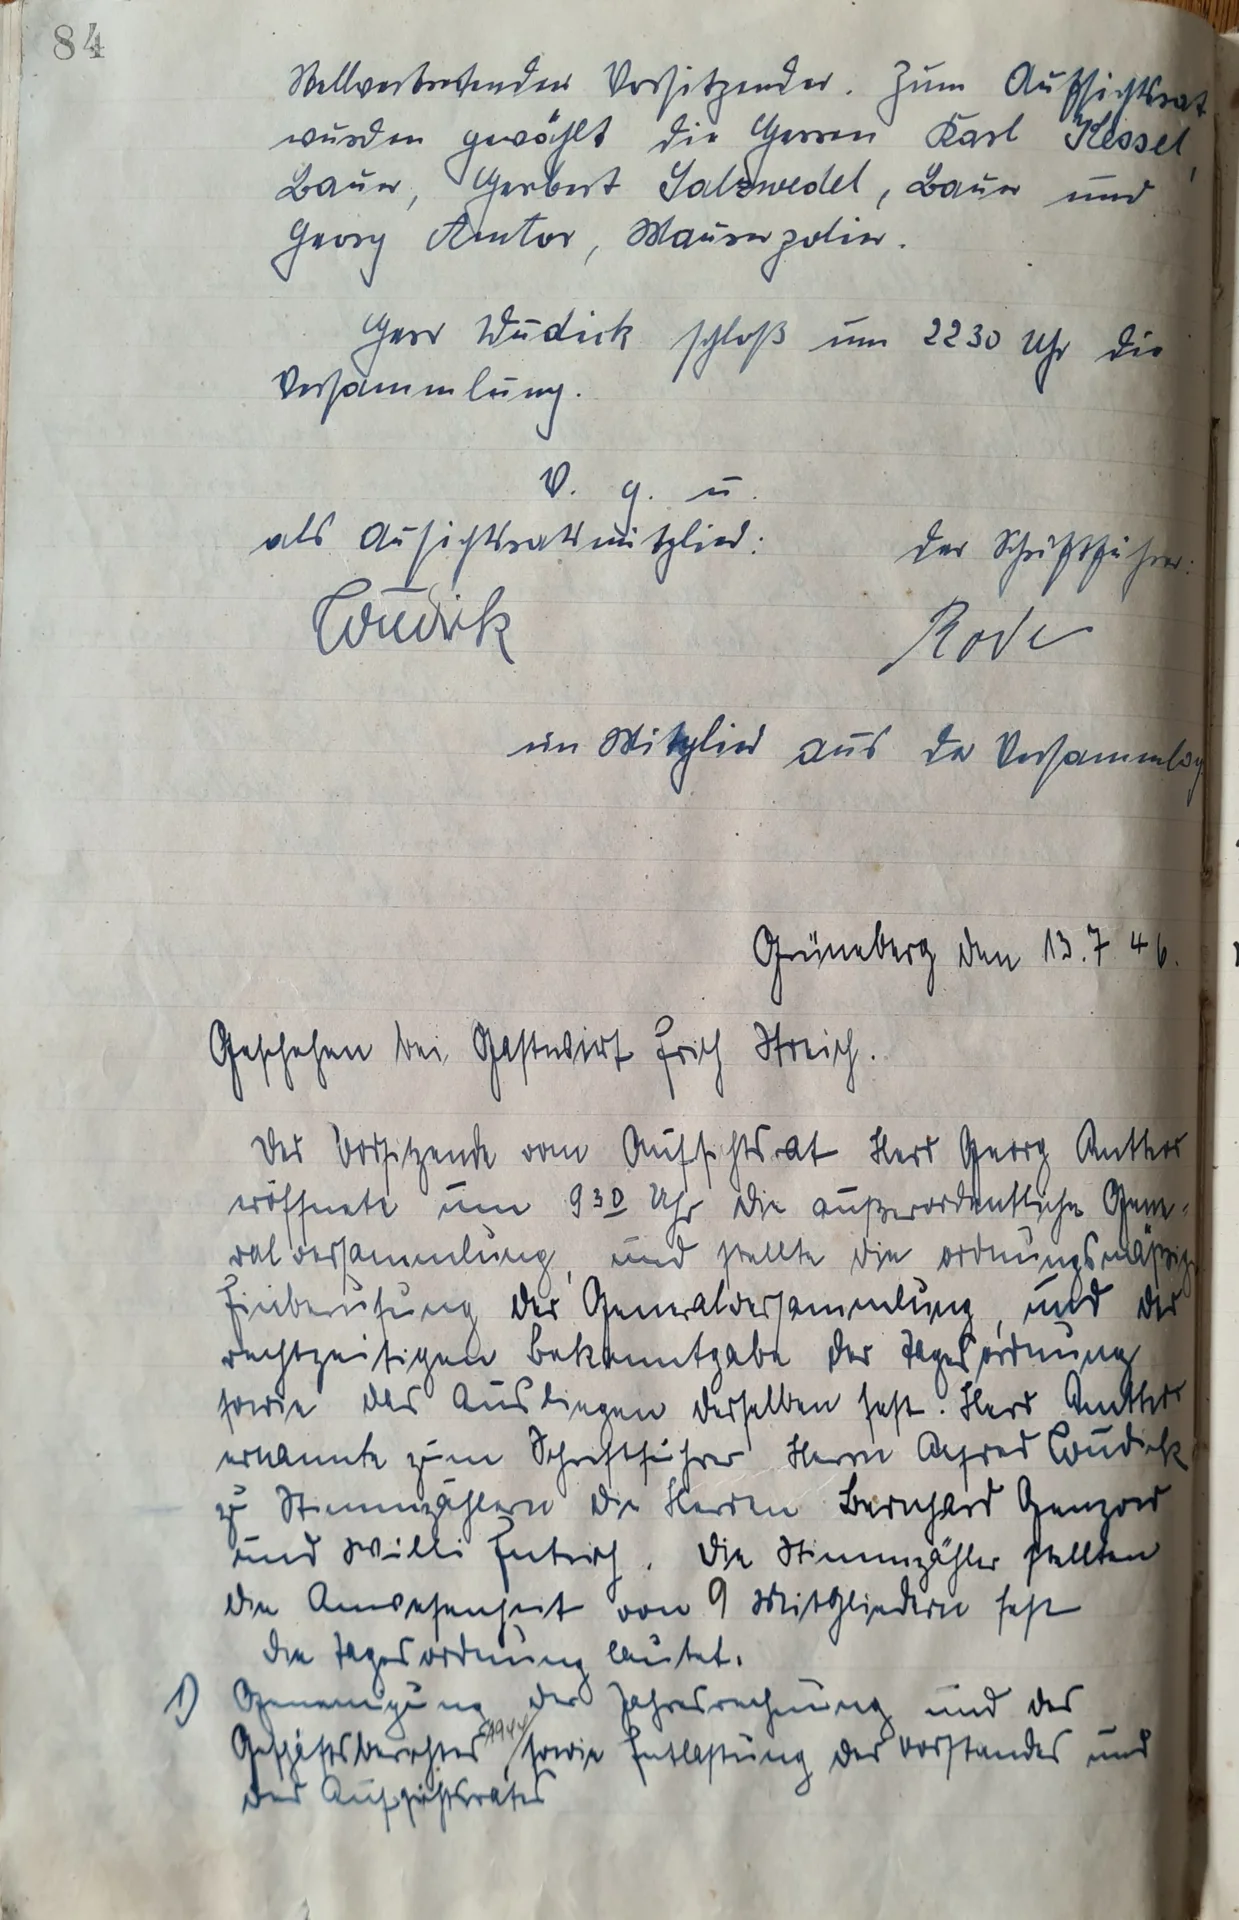 84
Stellvertretender Vorsitzender. Zum Aufsichtsrat
wurden gewählt die Herren Karl Kessel,
Bauer, Herbert Salzwedel, Bauer und
Georg Amtor, Maurerpolier.
Herr Wudick schloß um 2230 Uhr die
Versammlung.
V. g. u.
als Aufsichtsratsmitglied: der Schriftführer:
Wudick Rode
ein Mitglied aus der Versammlg
Grüneberg den 13.7.46.
Geschehen bei Gastwirt Erich Streich.
Der Vorsitzende vom Aufsichtsrat Herr Georg
eröffnete um 930 Uhr die außerordentliche Gene-
ralversammlung, und stellte die ordnungsmäßige
Einberufung der Generalversammlung, und der
rechtzeitigen Bekanntgabe der Tagesordnung
sowie des Ausliegen derselben fest. Herr
ernannte zum Schriftführer Herrn Alfred Wudick
zu Stimmzählern die Herren Bernhard
und Willi. Die Stimmzähler stellten
die Anwesenheit von 9 Mitgliedern fest
die Tagesordnung lautet.
1) Genemigung der Jahresrechnung und des
Geschäftsberichtes 1944 sowie Entlastung des Vorstandes und
des Aufsichtsrates